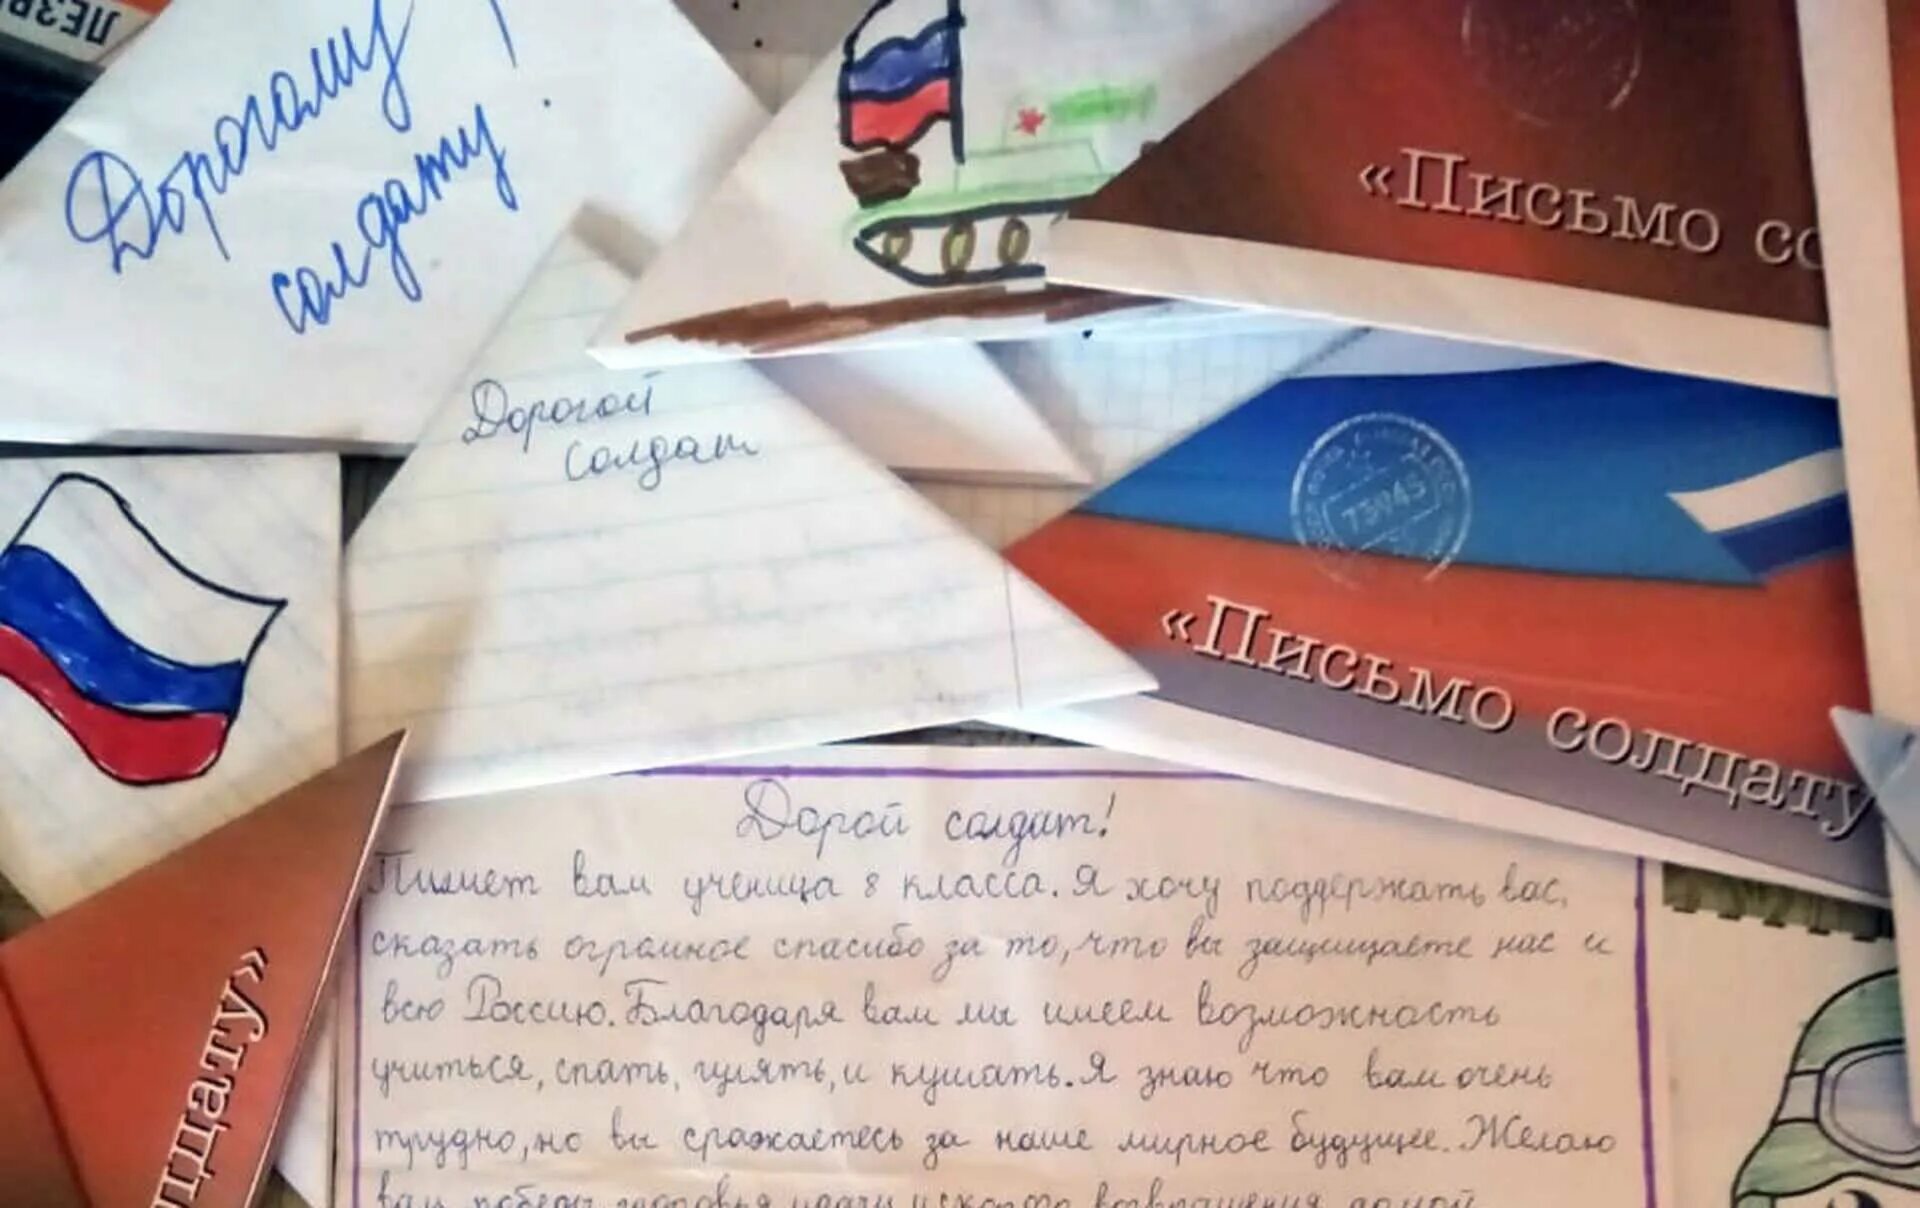 Дорогому
солдату!
«Письмо со
Дорогой
солдат
73945
«Письмо солдату
лдату»
Дорой солдат!
Пишет вам ученица 8 класса. Я хочу поддержать вас,
сказать огромное спасибо за то, что вы защищаете нас и
всю Россию. Благодаря вам мы имеем возможность
учиться, спать, гулять, и кушать. Я знаю что вам очень
трудно, но вы сражаетесь за наше мирное будущее. Желаю
вам победы здоровья удачи и скорого возвращения домой